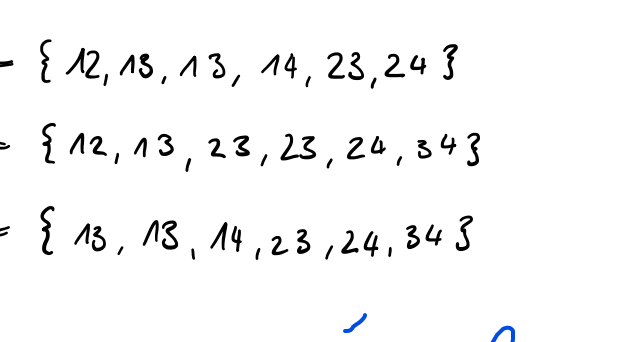 = { 12, 13, 13, 14, 23, 24 }
= { 12, 13, 23, 23, 24, 34 }
= { 13, 13, 14, 23, 24, 34 }